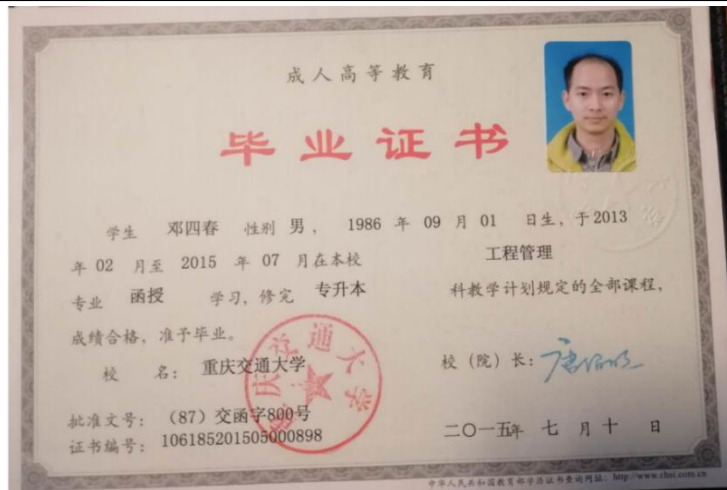 成人高等教育
毕业证书
学生 邓四春 性别 男， 1986 年 09 月 01 日生，于2013
年 02 月至 2015 年 07 月在本校 工程管理
专业 函授 学习，修完 专升本 科教学计划规定的全部课程，
成绩合格，准予毕业。
校 名： 重庆交通大学 校（院）长：
批准文号： （87）交函字800号
证书编号： 106185201505000898 二〇一五年 七 月 十 日
中华人民共和国教育部学历证书查询网址：http://www.chsi.com.cn